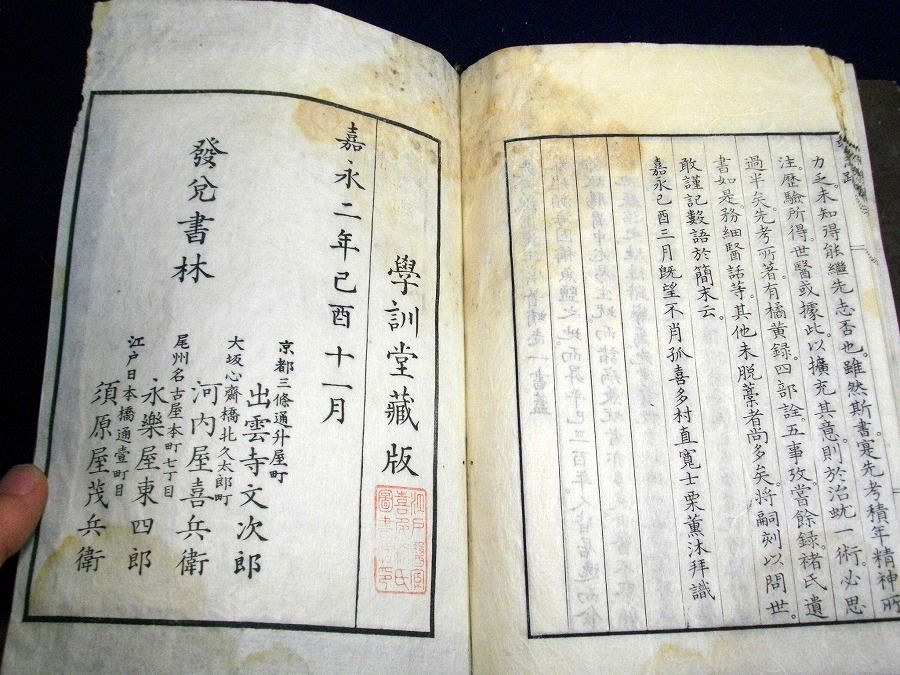 力乏。未知得能繼先志否也。雖然斯書寔先考積年精神所
注。歷驗所得。世醫或據此以擴充其意。則於治蚘一術。必思
過半矣。先考所著有橘黄錄。四部詮。五事攷。當餘録。褚氏遺
書如是。務細醫話等。其他未脫藁者尚多矣。將嗣刻以問世。
敢謹記數語於簡末云。
嘉永己酉三月既望不肖孤喜多村直寬士栗薰沐拜識
學訓堂藏版
嘉永二年己酉十一月
發兌書林
京都三條通升屋町
出雲寺文次郎
大坂心齋橋北久太郎町
河内屋喜兵衛
尾州名古屋本町七丁目
永樂屋東四郎
江戸日本橋通壹町目
須原屋茂兵衛